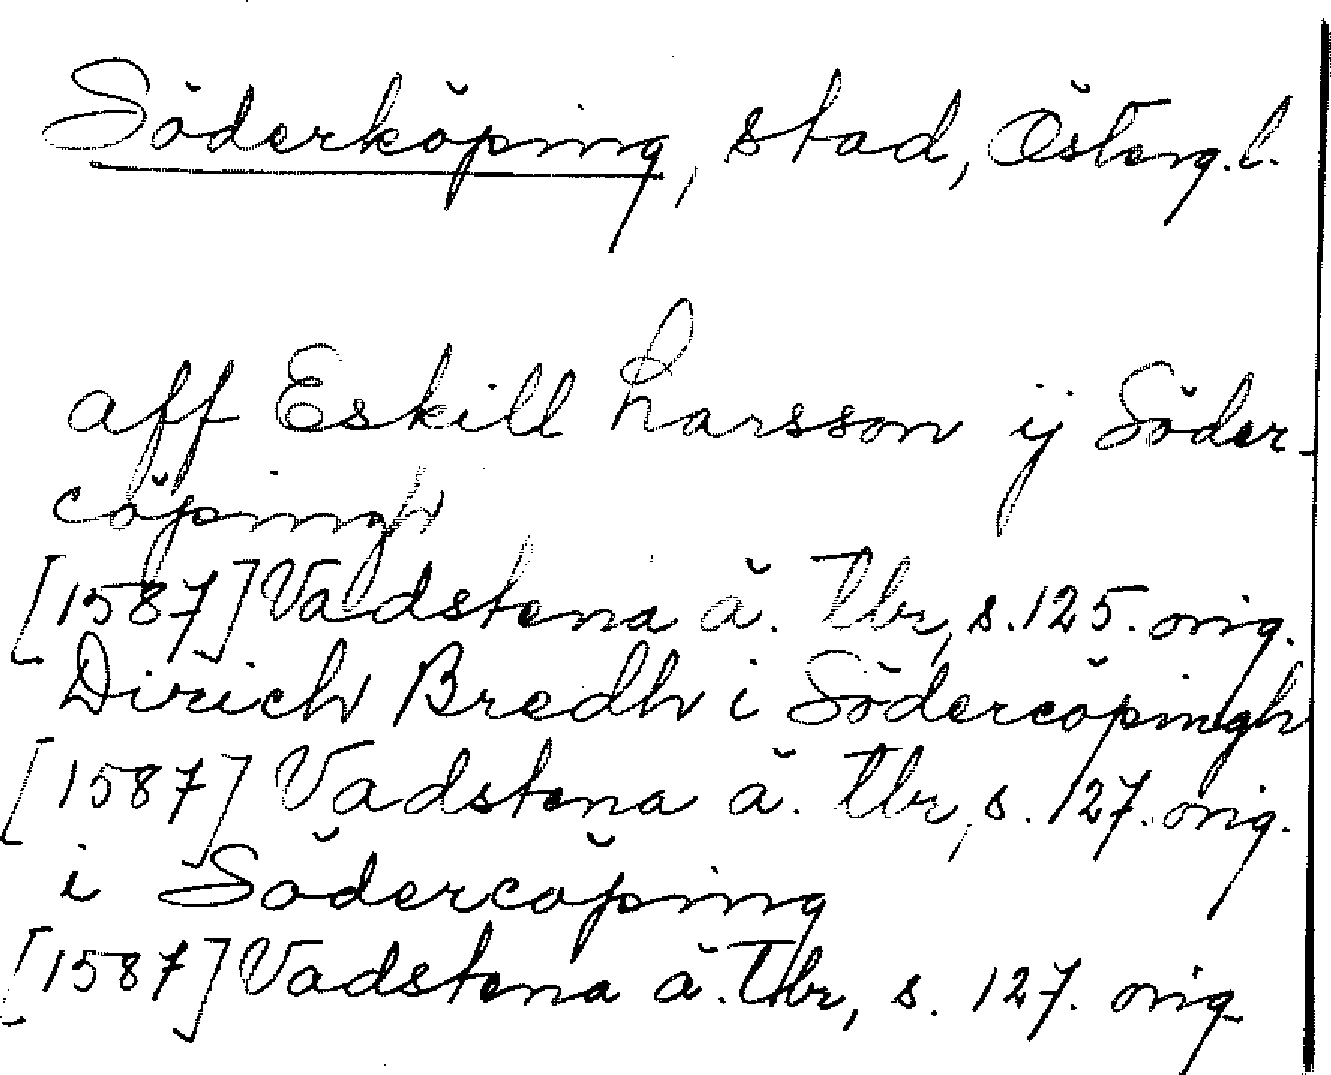 Söderköping, stad, Österg.l.
aff Eskill Larsson ij Söder-
cöpingh
[1587] Vadstena ä. Tbr, s. 125. orig.
Dirich Bredh i Södercöpingh
[1587] Vadstena ä. Tbr, s. 127. orig.
i Södercöping
[1587] Vadstena ä. Tbr, s. 127. orig